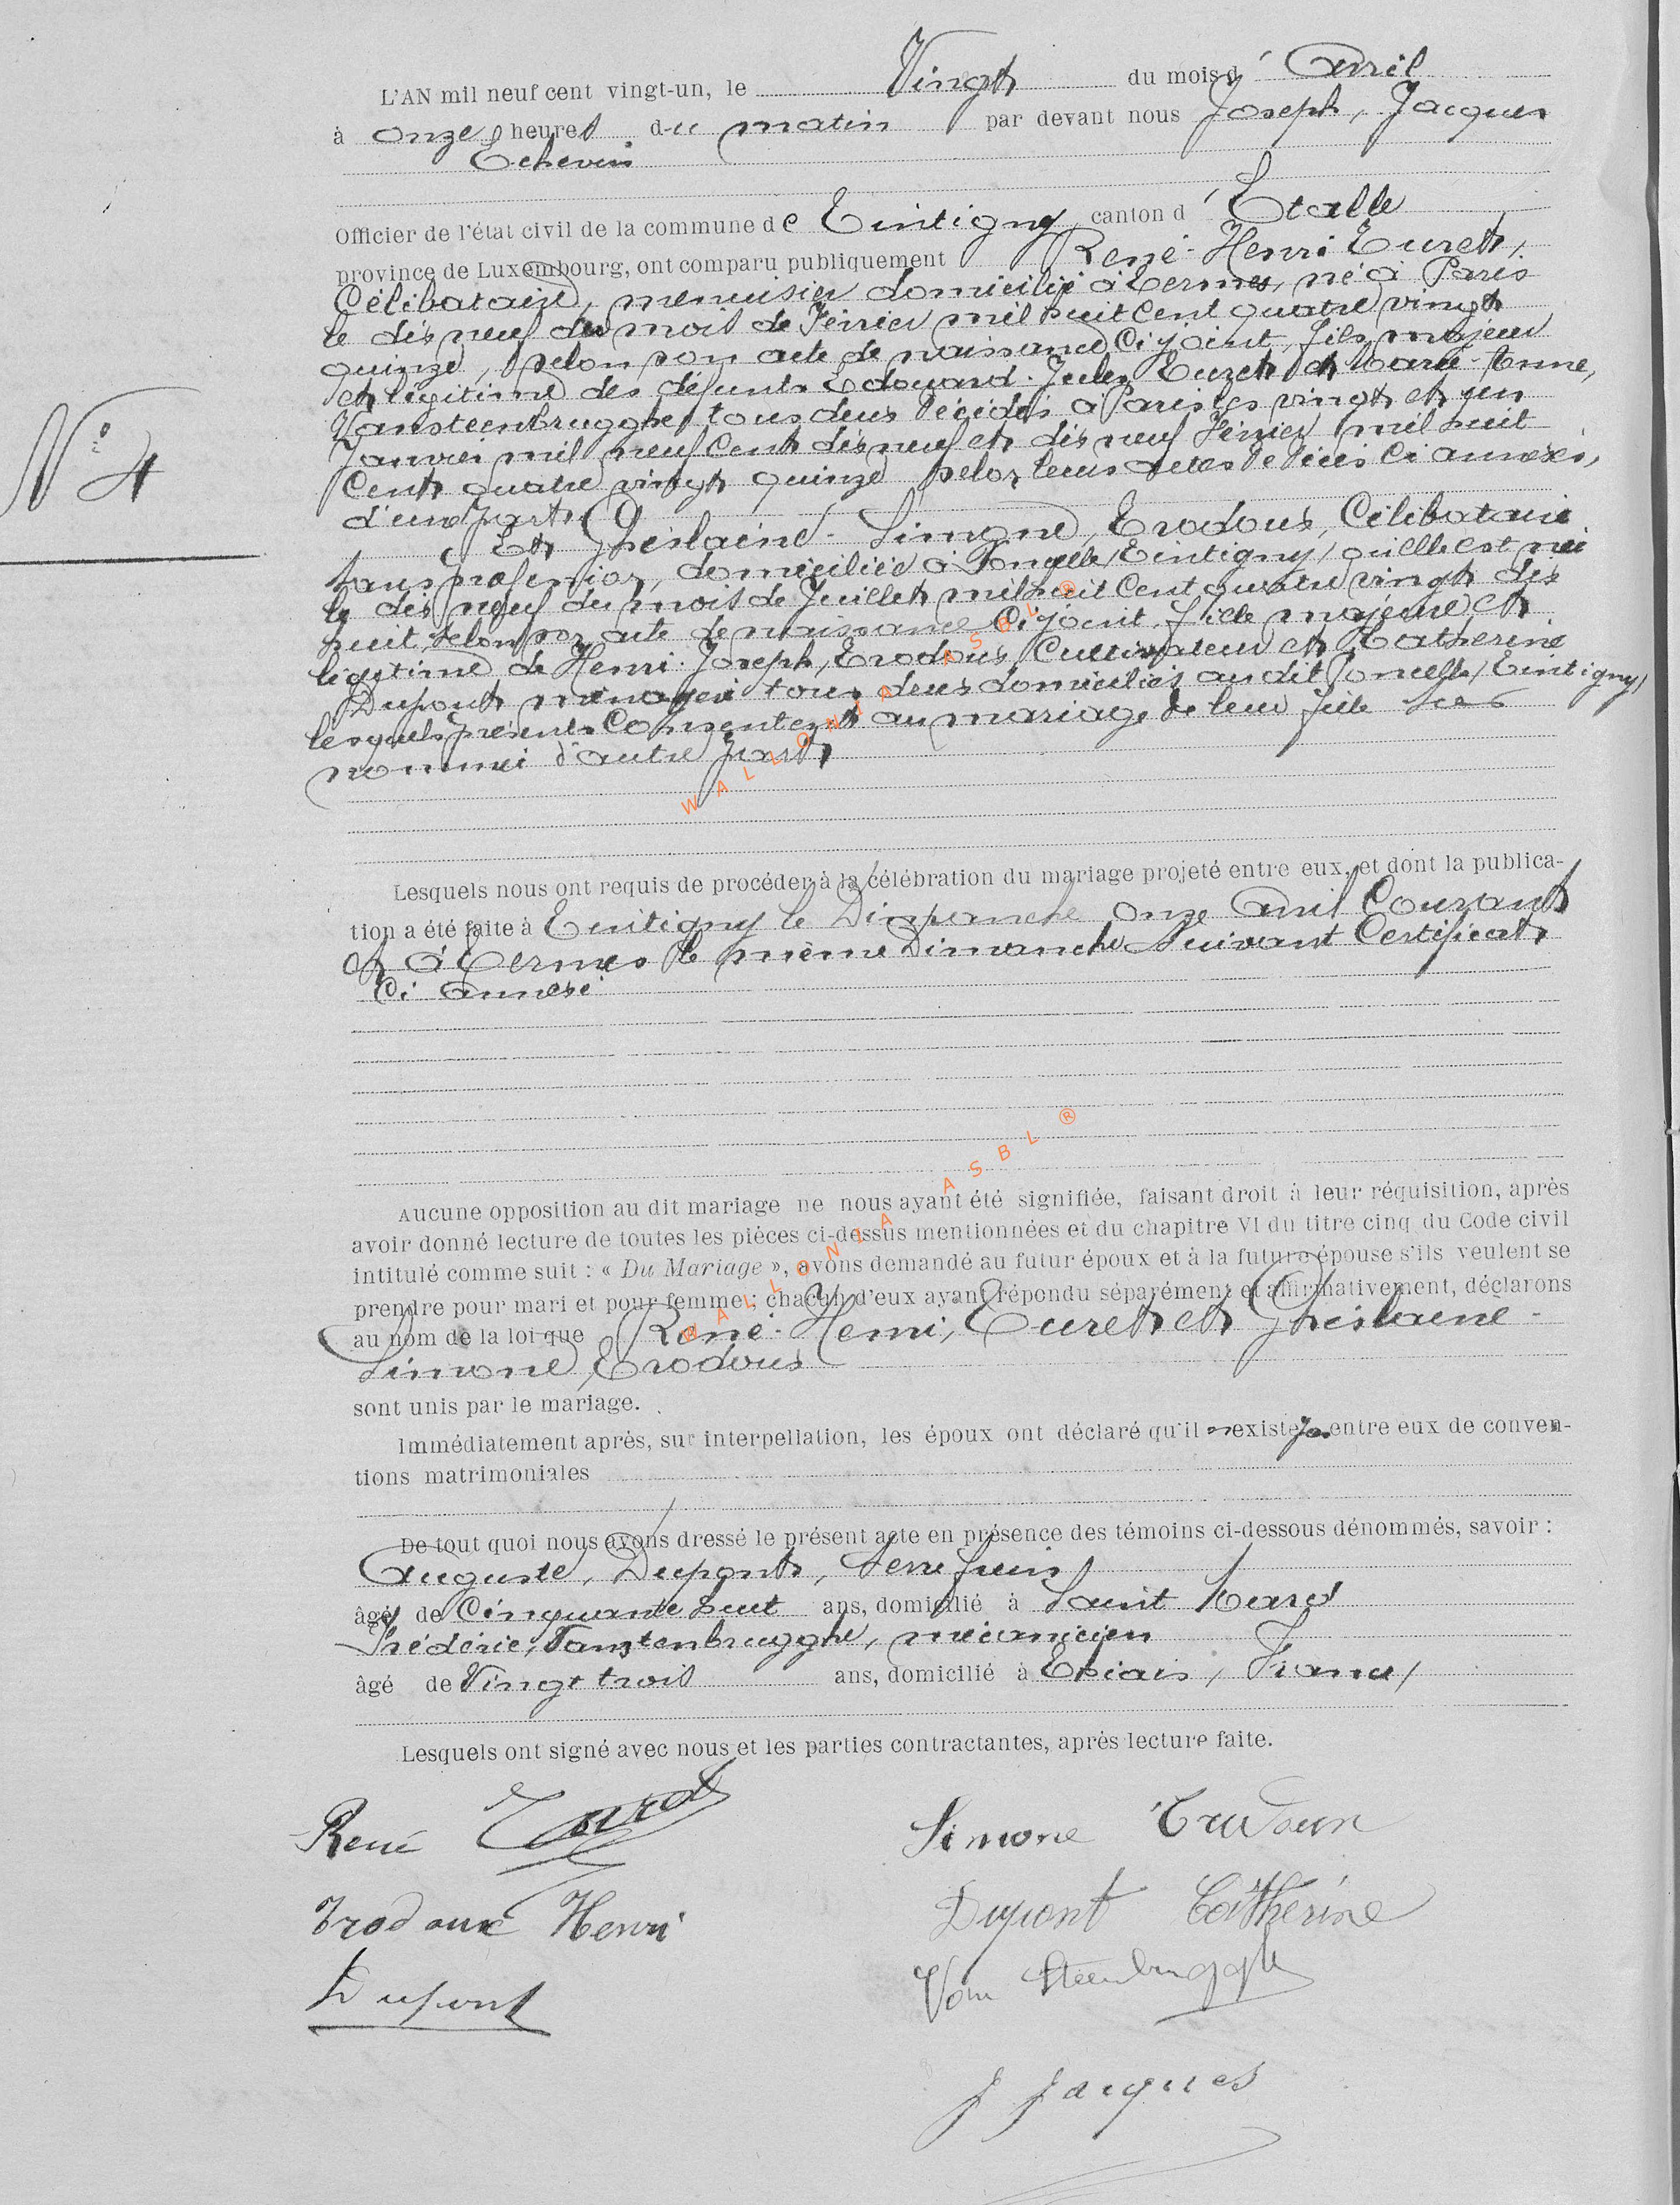 L'AN mil neuf cent vingt-un, le Vingt du mois d' Avril
à onze heures du matin par devant nous Joseph, Jacques
Echevin
Officier de l'état civil de la commune de Tintigny canton d' Etalle
province de Luxembourg, ont comparu publiquement René-Henri Turet,
Célibataire, menuisier domicilié à Termes, né à Paris
le dis neuf du mois de Février mil huit Cent quatre vingt
quinze, selon son acte de naissance Ci joint, fils majeur
et légitime des défunts Edouard-Jules Turet et Marie-Anne,
Vansteenbrugghe tous deux décédés à Paris les vingt et un
Janvier mil neuf Cent dis neuf et dis neuf Février mil huit
Cent quatre vingt quinze selon leurs actes de décès Ci annexés,
d'une part
Et Ghislaine-Simone, Trodoux, Célibataire
sans profession, domiciliée à Poncelle, Tintigny, où elle est née
le dis neuf du mois de Juillet mil huit Cent quatre vingt dis
huit, selon son acte de naissance Ci joint, fille majeure et
légitime de Henri-Joseph, Trodoux, Cultivateur et Catherine
Dupont ménagère tous deux domiciliés au dit Poncelle, Tintigny,
lesquels présents Consentent au mariage de leur fille
nommée d'autre part,
Lesquels nous ont requis de procéder à la célébration du mariage projeté entre eux, et dont la publica-
tion a été faite à Tintigny le Dimanche onze Avril Courant
et à Termes le même Dimanche suivant Certificat
Ci annexé
Aucune opposition au dit mariage ne nous ayant été signifiée, faisant droit à leur réquisition, après
avoir donné lecture de toutes les pièces ci-dessus mentionnées et du chapitre VI du titre cinq du Code civil
intitulé comme suit : « Du Mariage », avons demandé au futur époux et à la future épouse s'ils veulent se
prendre pour mari et pour femme ; chacun d'eux ayant répondu séparément et affirmativement, déclarons
au nom de la loi que René-Henri, Turet et Ghislaine-
Simone, Trodoux
sont unis par le mariage.
Immédiatement après, sur interpellation, les époux ont déclaré qu'il n'existe pas entre eux de conven-
tions matrimoniales
De tout quoi nous avons dressé le présent acte en présence des témoins ci-dessous dénommés, savoir :
Auguste, Dupont, serre freins
âgé de Cinquante huit ans, domicilié à Saint Mard
Frédéric, Vanstenbrugghe, mécanicien
âgé de Vingt trois ans, domicilié à France,
Lesquels ont signé avec nous et les parties contractantes, après lecture faite.
René Turet
Simone Trodoux
Trodoux Henri
Dupont Catherine
Dupont
Van Steenbrugghe
J Jacques
N° 4
WALLONIA ASBL ®
WALLONIA ASBL ®